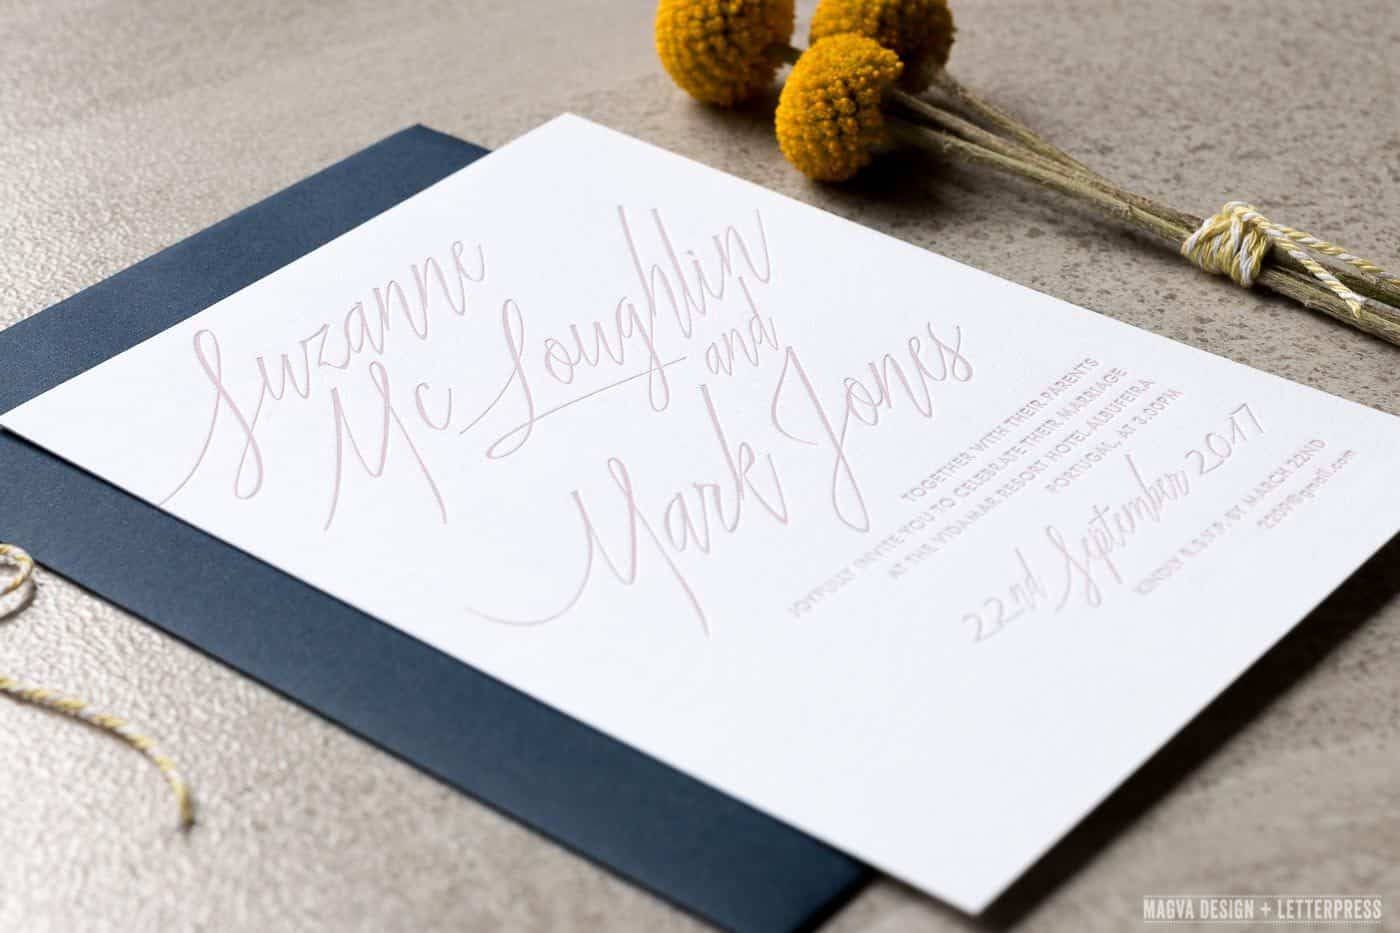 Suzanne
Mc Loughlin
and
Mark Jones
TOGETHER WITH THEIR PARENTS
JOYFULLY INVITE YOU TO CELEBRATE THEIR MARRIAGE
AT THE VIDAMAR RESORT HOTEL ALBUFEIRA
PORTUGAL, AT 3.00PM
22nd September 2017
KINDLY R.S.V.P. BY MARCH 22ND
MAGVA DESIGN + LETTERPRESS